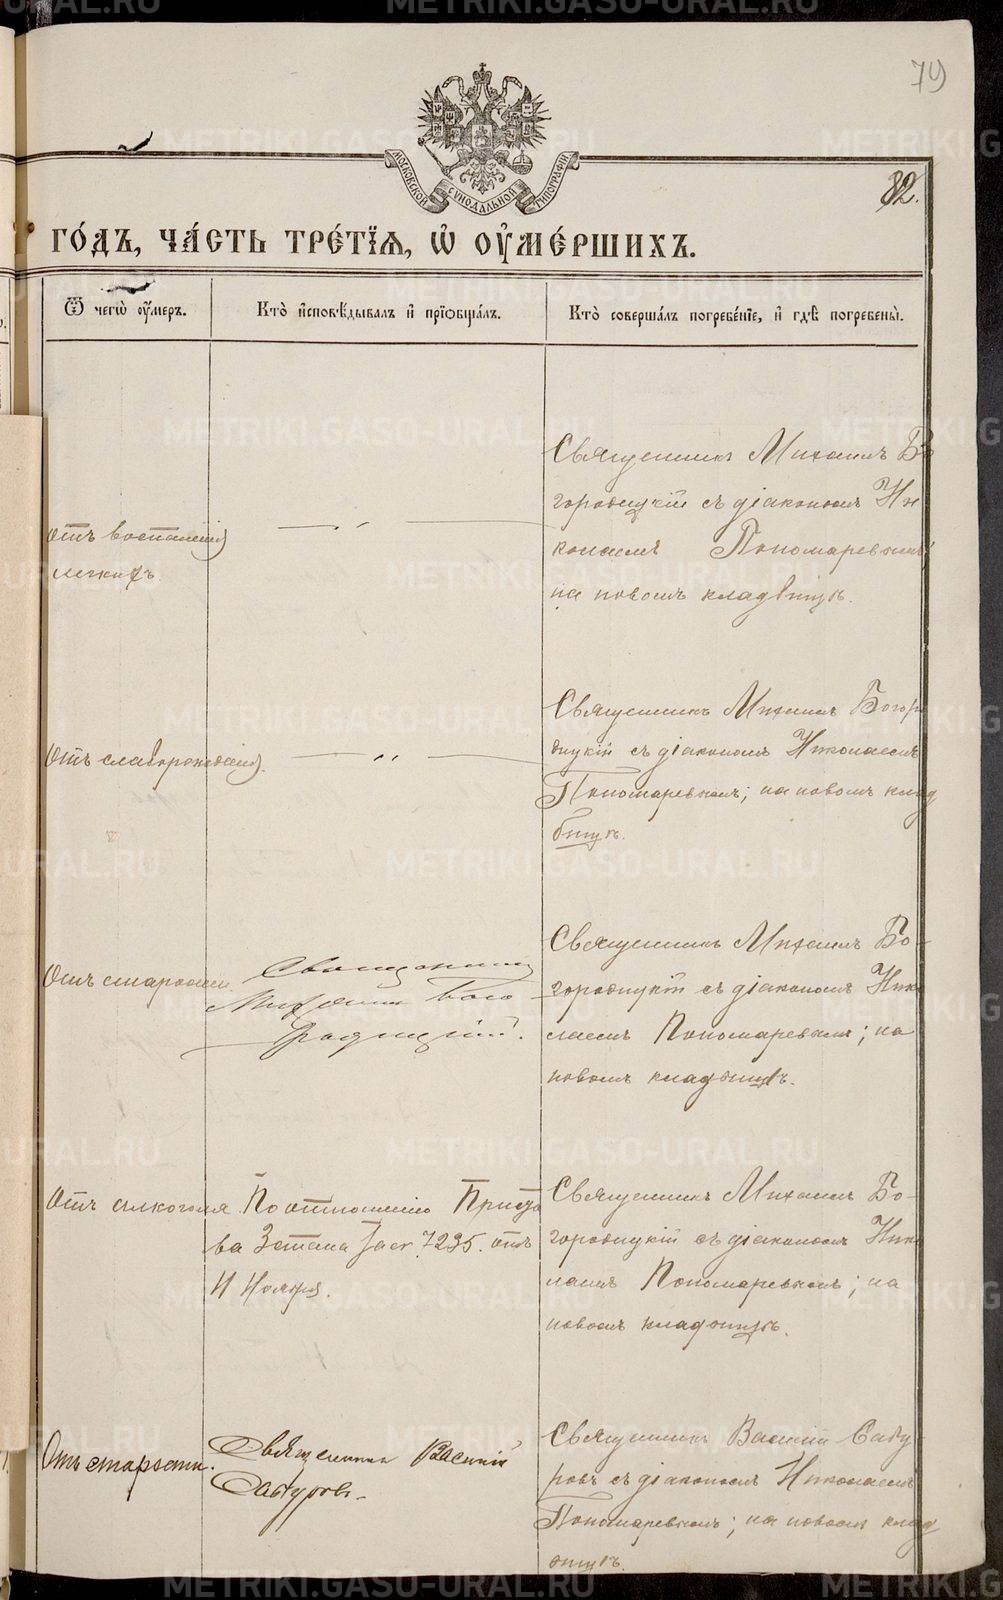 79
МОСКОВСКОЙ СѴНОДАЛЬНОЙ ТИПОГРАФІИ
82.
ГО́ДЪ, ЧА́СТЬ ТРЕ́ТІѦ, Ѡ҆ ОУ҆МЕ́РШИХЪ.
Ѿ чегѡ̀ оу҆́меръ.
Кто̀ и҆сповѣ́дывалъ и҆ прїѡбща́лъ.
Кто̀ соверша́лъ погребе́нїе, и҆ гдѣ̀ погребены̀.
Отъ воспаленія
легкихъ
— „ —
Священникъ Михаилъ Бо
городицкій съ діакономъ Ни
колаемъ Пономаревымъ
на новомъ кладбищѣ.
Отъ слаборожденія.
— „ —
Священникъ Михаилъ Богоро
дицкій съ діакономъ Николаемъ
Пономаревымъ; на новомъ клад
бищѣ.
Отъ старости
Священникъ
Михаилъ Бого
родицкій.
Священникъ Михаилъ Бо-
городицкій съ діакономъ Нико
лаемъ Пономаревымъ; на
новомъ кладбищѣ.
Отъ алкоголя
По отношенію Приста
ва 3 стана за № 7235. отъ
11 Ноября.
Священникъ Михаилъ Бо-
городицкій съ діакономъ Нико
лаемъ Пономаревымъ; на
новомъ кладбищѣ.
Отъ старости.
Священникъ Василій
Сабуровъ
Священникъ Василій Сабу
ровъ съ діакономъ Николаемъ
Пономаревымъ; на новомъ клад
бищѣ.
METRIKI.GASO-URAL.RU